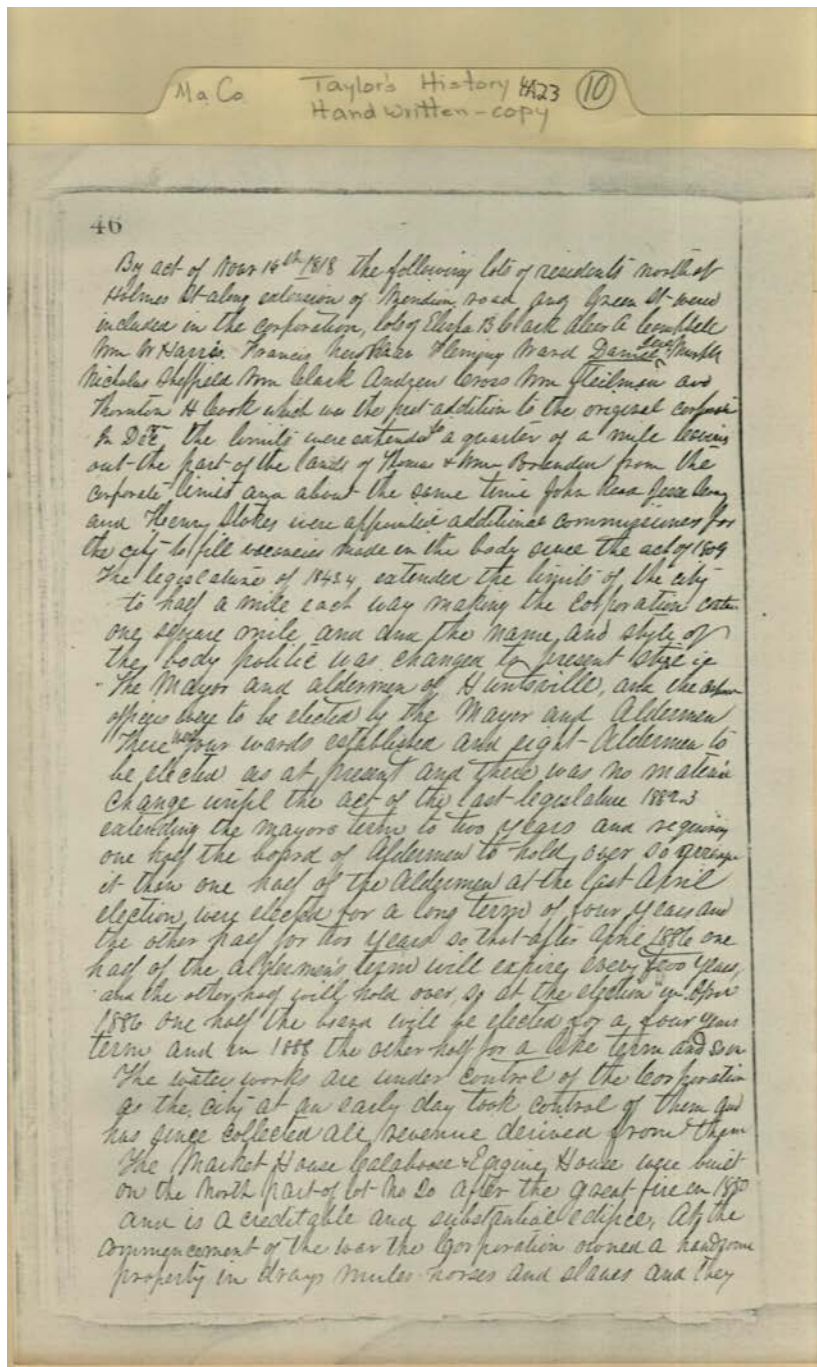 Ma Co Taylor's History 4A23 10
Handwritten-copy
46
By act of Novr 14th 1818 the following lots of residents north of
Holmes St along extension of Meridian road and Green St were
included in the corporation, lots of Elisha B Clark Alexr Campbell
Wm W Harris Francis Fleming Ward Daniel
Nicholas Sheffield Wm Clark Andrew Cross Wm and
Thornton H Cook which was the first addition to the original
In the limits were extended to a quarter of a mile leaving
out the part of the lands of Thomas & Wm Brandon from the
corporate limits and about the same time John Read Jesse
and Henry Stokes were appointed additional commissioners for
the city to fill vacancies made in the body since the act of 1809
The legislature of 1843.4 extended the limits of the city
to half a mile each way making the corporation
one square mile and the name and style of
the body politic was changed to present style ie
The Mayor and aldermen of Huntsville, and the
offices were to be elected by the Mayor and Aldermen
There were four wards established and eight Aldermen to
be elected as at present and there was no material
change until the act of the last legislature 1882.3
extending the mayors term to two years and requiring
one half the board of Aldermen to hold over so
it then one half of the Aldermen at the last April
election were elected for a long term of four years and
the other half for two years so that after April 1886 one
half of the aldermen's term will expire every two years,
and the other half will hold over, so at the election in April
1886 one half the board will be elected for a four years
term and in 1888 the other half for a like term and so on
The water works are under control of the Corporation
as the city at an early day took control of them and
has since collected all revenue derived from them
The Market House Calaboose & Engine House were built
on the North part of lot No after the great fire in
and is a creditable and substantial edifice, At the
commencement of the war the Corporation owned a handsome
property in drays mules horses and slaves and they